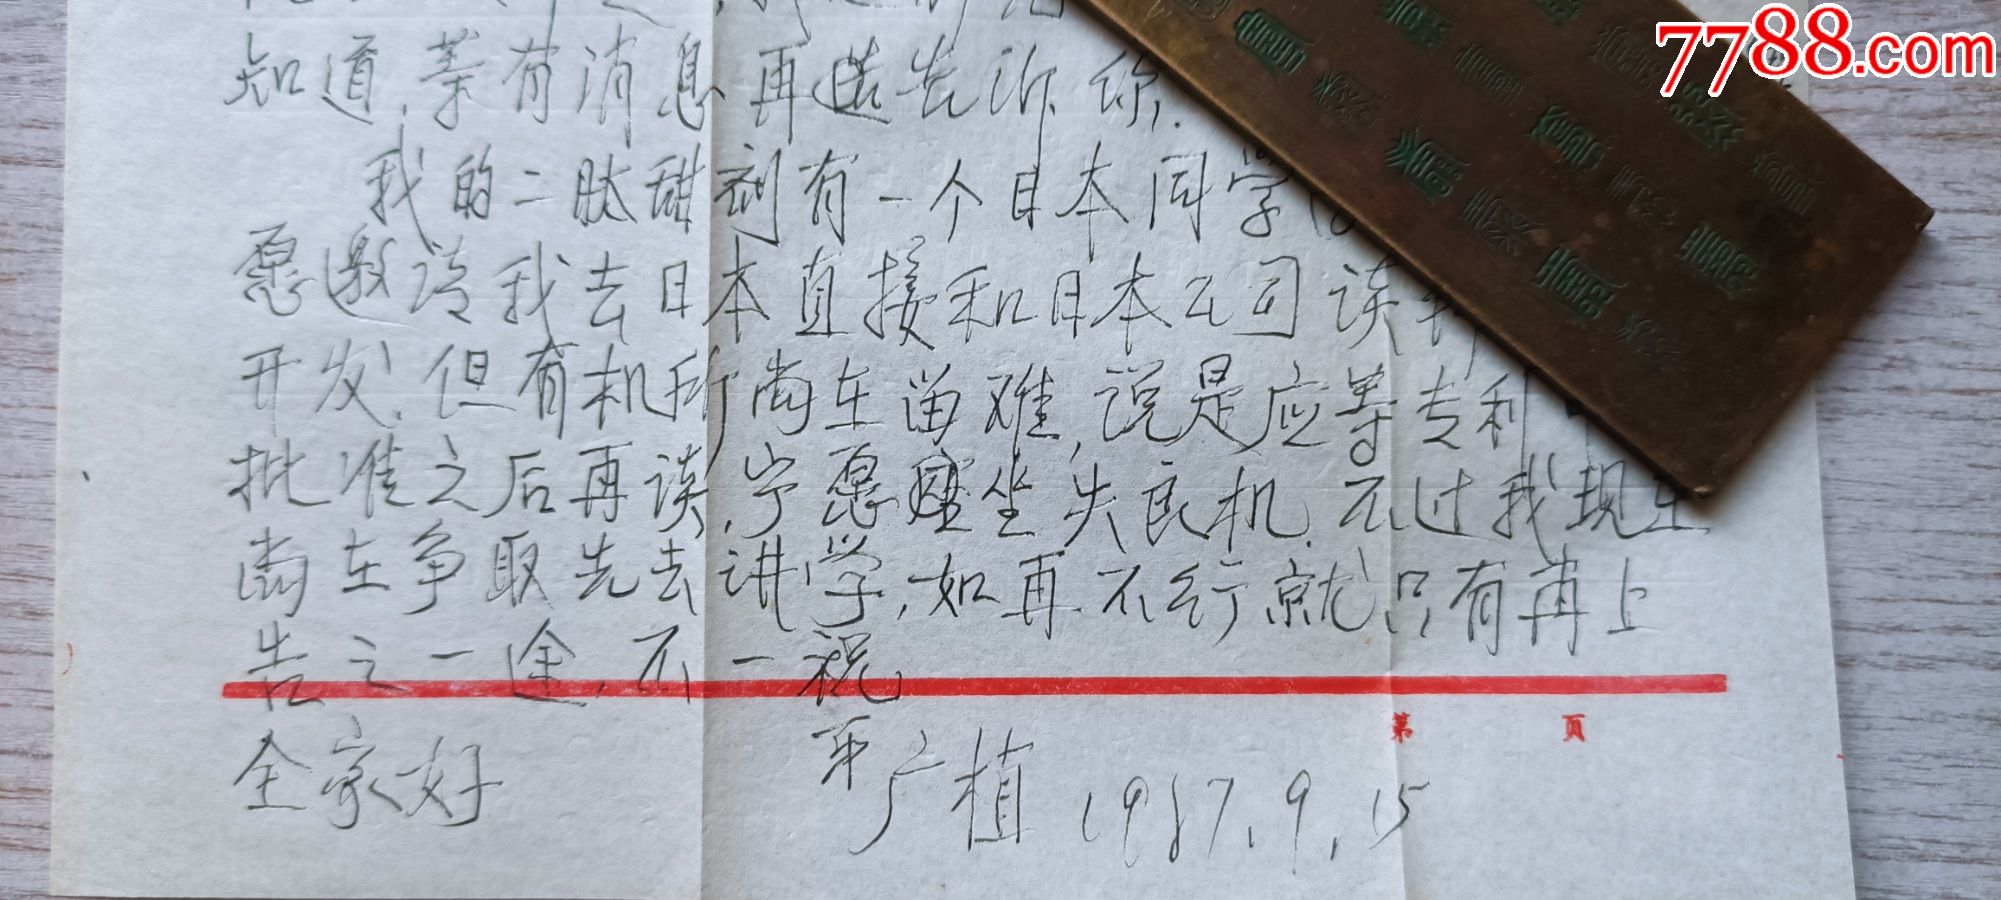 7788.com
知道,等有消息再选告诉你.
我的二肽甜剂有一个日本同学(
愿邀请我去日本直接和日本公司谈判
开发,但有机所尚在留难,说是应等专利
批准之后再谈,宁愿坐失良机.不过我现在
尚在争取先去讲学,如再不行就只有再上
告之一途,不一祝
全家好
弟广植 1987.9.15
第 页